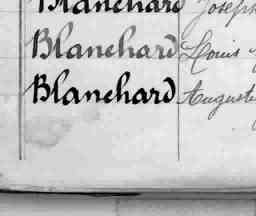 Blanchard Joseph
Blanchard Louis
Blanchard